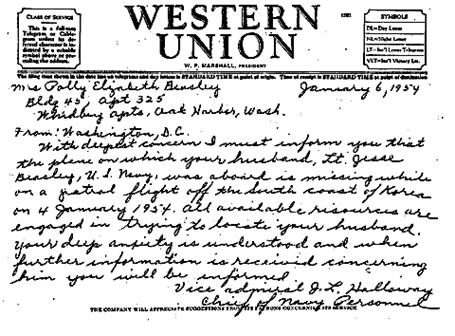 CLASS OF SERVICE
This is a full-rate
Telegram or Cable-
gram unless its de-
ferred character is in-
dicated by a suitable
symbol above or pre-
ceding the address.
WESTERN
UNION
W. P. MARSHALL, PRESIDENT
1201
SYMBOLS
DL=Day Letter
NL=Night Letter
LT=Int'l Letter Telegram
VLT=Int'l Victory Ltr.
The filing time shown in the date line on telegrams and day letters is STANDARD TIME at point of origin. Time of receipt is STANDARD TIME at point of destination
Mrs Polly Elizabeth Beasley
January 6, 1954
Bldg 45, Apt 325
Whidbey Apts, Oak Harbor, Wash.
From: Washington, D.C.
With deepest concern I must inform you that
the plane on which your husband, Lt. Jesse
Beasley, U.S. Navy, was aboard is missing while
on a patrol flight off the south coast of Korea
on 4 January 1954. All available resources are
engaged in trying to locate your husband.
Your deep anxiety is understood and when
further information is received concerning
him you will be informed.
Vice admiral J. L. Holloway
Chief of Navy Personnel
THE COMPANY WILL APPRECIATE SUGGESTIONS FROM ITS PATRONS CONCERNING ITS SERVICE